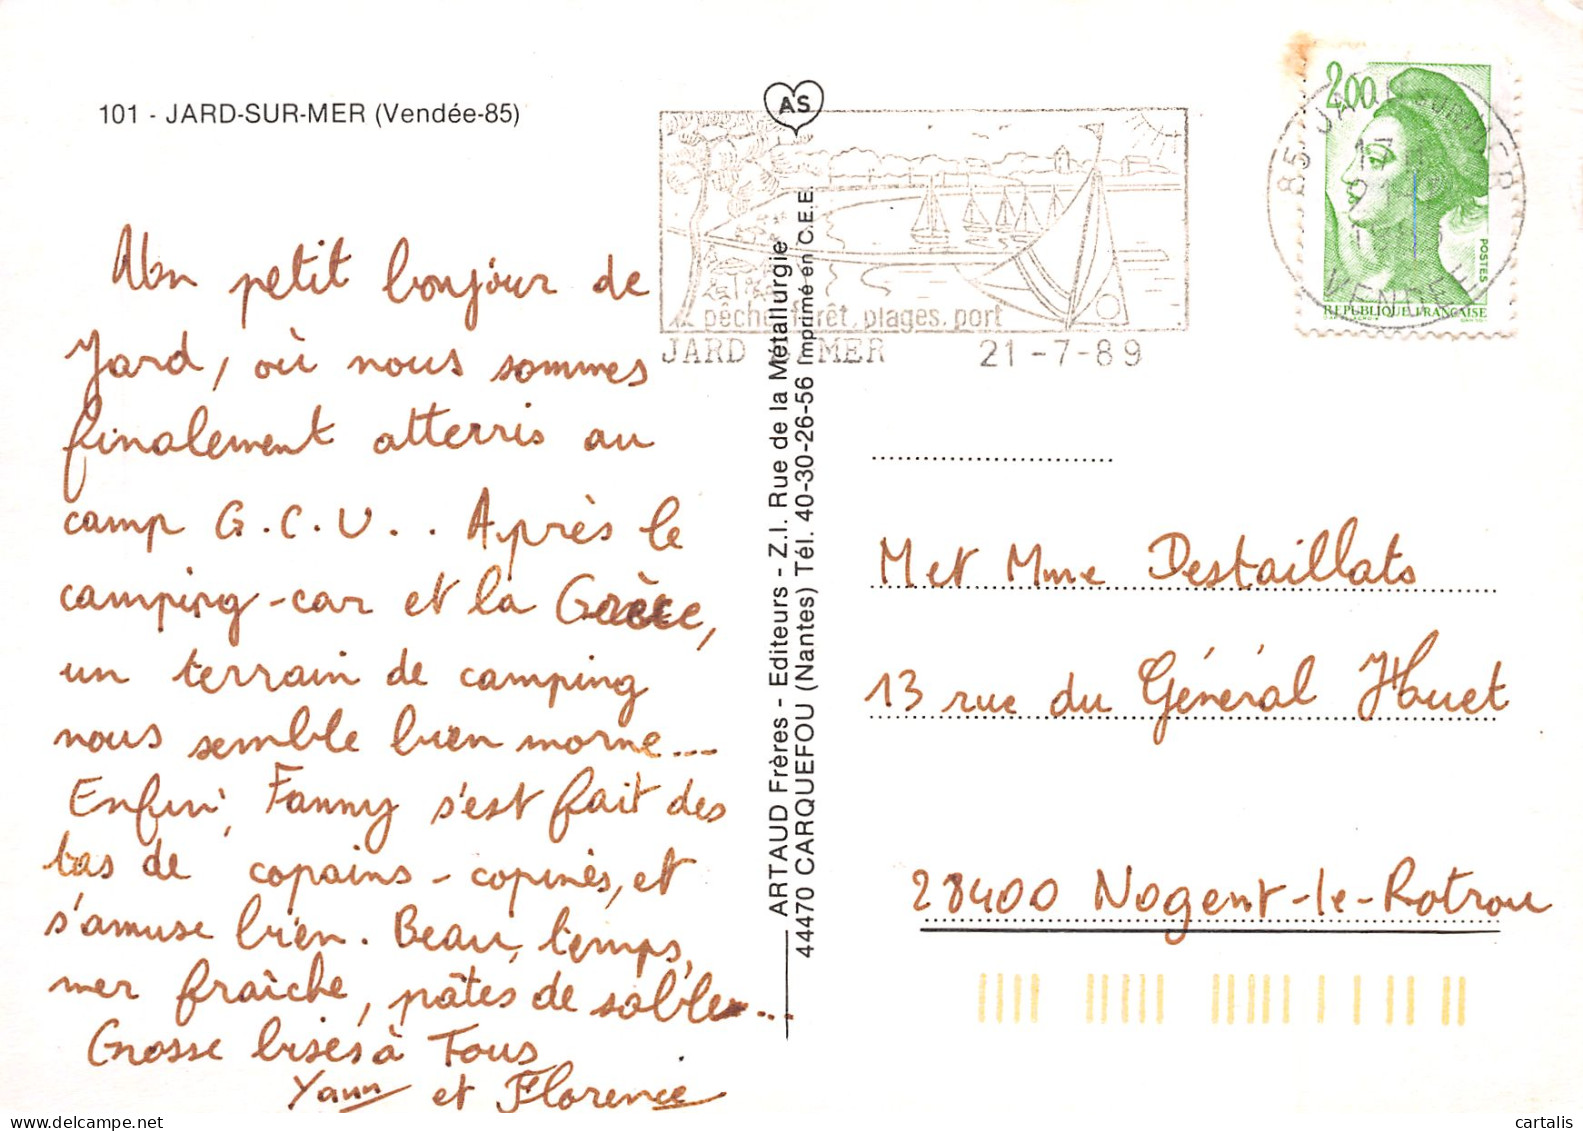 101 - JARD-SUR-MER (Vendée-85)
Un petit bonjour de
Jard, où nous sommes
finalement atterris au
camp G.C.U.. Après le
camping-car et la Grèce,
un terrain de camping
nous semble bien morne...
Enfin, Fanny s'est fait des
tas de copains-copines, et
s'amuse bien. Beau temps,
mer fraîche, pâtés de sable...
Grosse bises à Tous
Yann et Florence
AS
ARTAUD Frères - Editeurs - Z.I. Rue de la Métallurgie
44470 CARQUEFOU (Nantes) Tél. 40-30-26-56 Imprimé en C.E.E.
pêche, forêt, plages, port
JARD S MER 21-7-89
2,00
POSTES
REPUBLIQUE FRANÇAISE
85 JARD SUR MER
VENDEE
M et Mme Destaillats
13 rue du Général Huet
28400 Nogent-le-Rotrou
cartalis